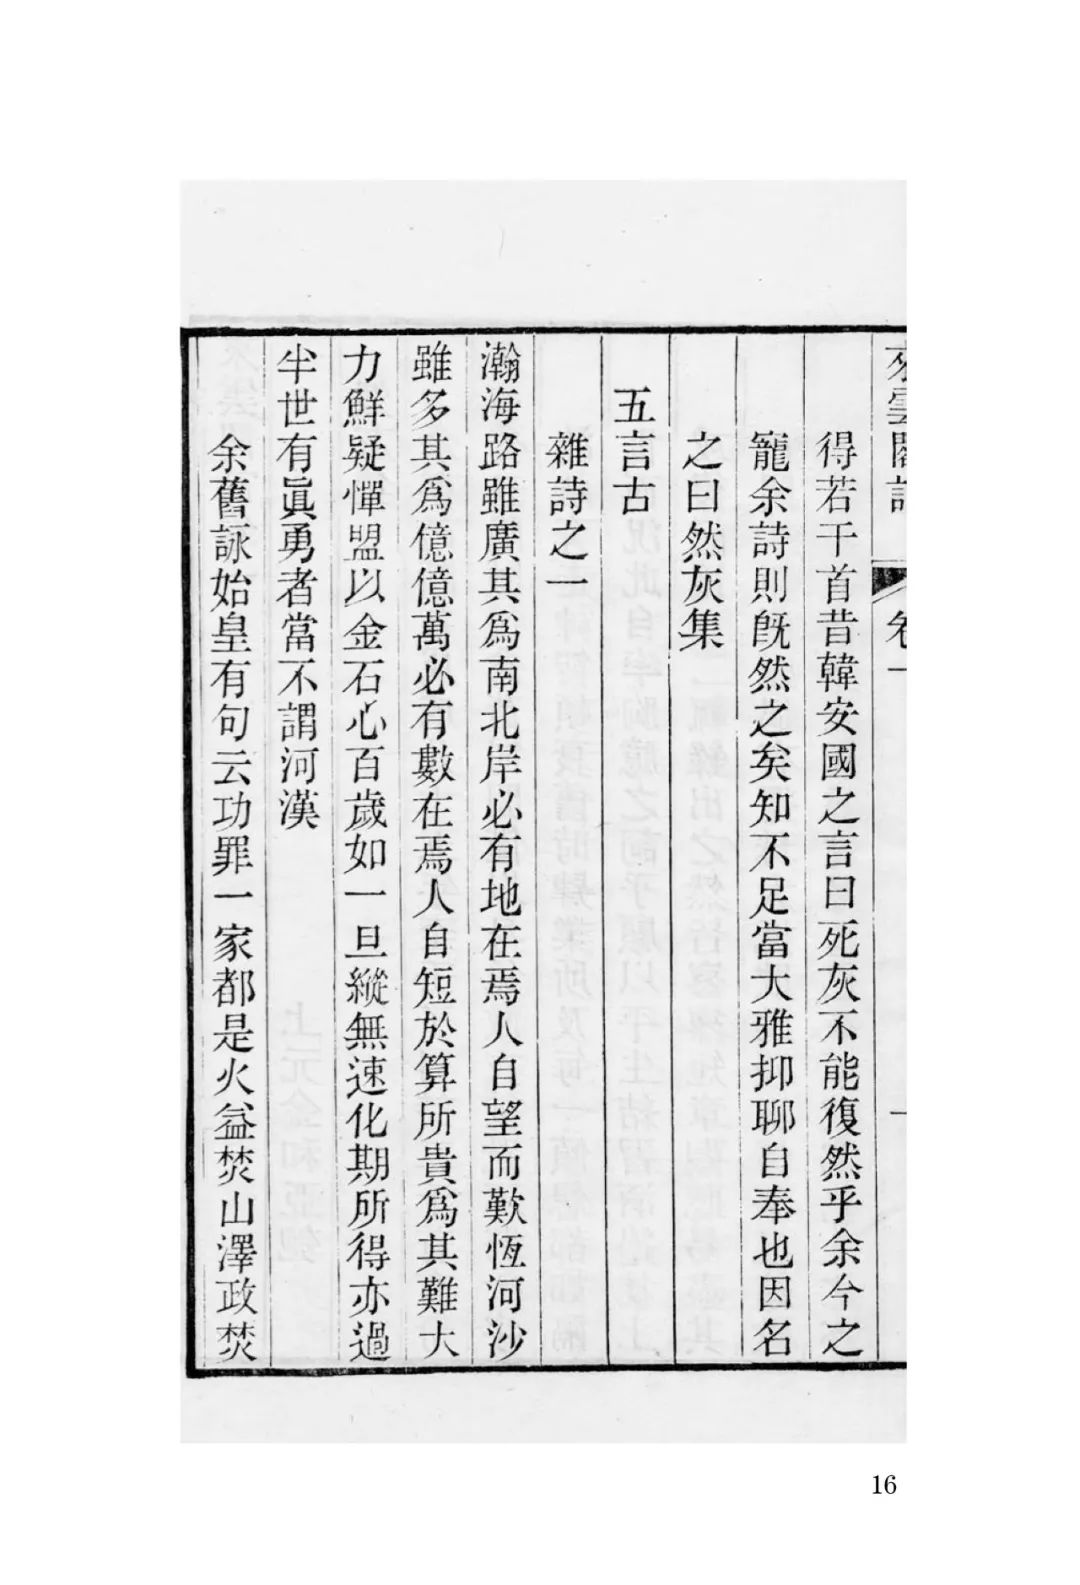 來雲閣詩 卷一 一
得若干首昔韓安國之言曰死灰不能復然乎余今之
寵余詩則旣然之矣知不足當大雅抑聊自奉也因名
之曰然灰集
五言古
雜詩之一
瀚海路雖廣其爲南北岸必有地在焉人自望而歎恆河沙
雖多其爲億億萬必有數在焉人自短於算所貴爲其難大
力鮮疑憚盟以金石心百歲如一旦縱無速化期所得亦過
半世有眞勇者當不謂河漢
余舊詠始皇有句云功罪一家都是火益焚山澤政焚
16